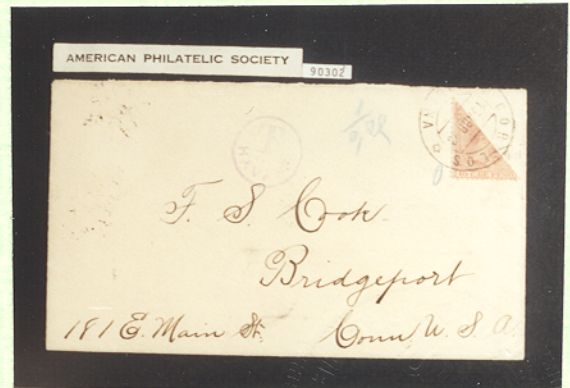 AMERICAN PHILATELIC SOCIETY
90302
F. S. Cook
Bridgeport
181 E. Main St. Conn. U. S. A.